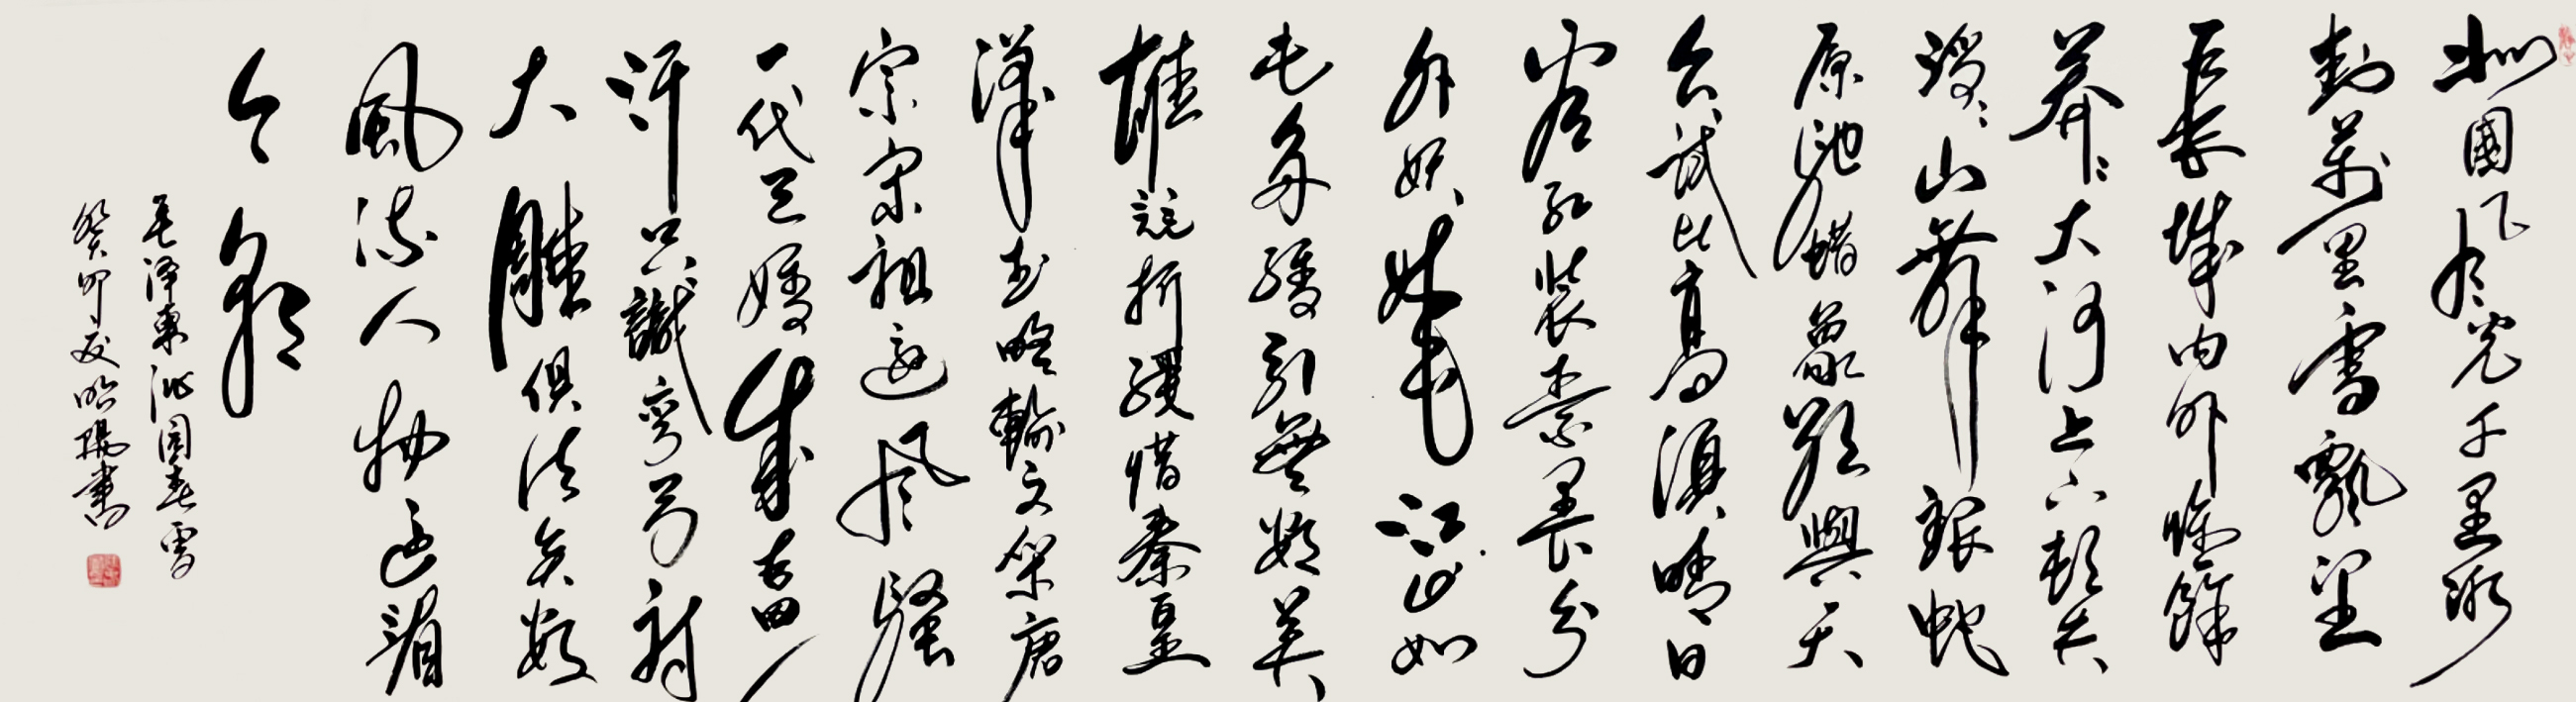 北國风光千里冰
封萬里雪飄望
長城内外惟餘
莽々大河上下頓失
滔々山舞銀蛇
原馳蜡象欲與天
公試比高須晴日
看紅装素裹分
外妖嬈江山如
此多嬌引無數英
雄競折腰惜秦皇
漢武略輸文采唐
宗宋祖遜风騷
一代天嬌成吉思
汗只識彎弓射
大雕俱往矣數
風流人物还看
今朝
毛澤東沁園春雪
癸卯夏陽書